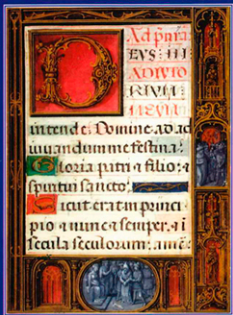 Ad primã
D EVS IN
ADIVTO
RIVM
MEVM
intende: Domine ad ad
iuuandum me festina:
Gloria patri & filio: &
spiritui sancto:
Sicut erat in princi
pio & nunc & semper: & i
secula seculorum: amẽ: